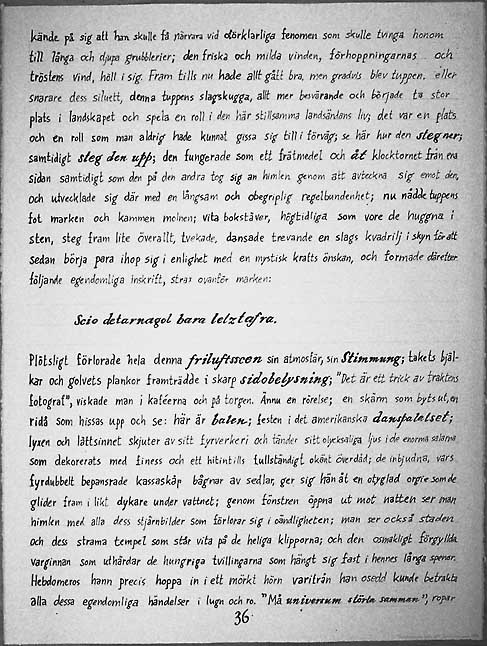 kände på sig att han skulle få närvara vid oförklarliga fenomen som skulle tvinga honom
till långa och djupa grubblerier; den friska och milda vinden, förhoppningarnas och
tröstens vind, höll i sig. Fram tills nu hade allt gått bra, men gradvis blev tuppen, eller
snarare dess siluett, denna tuppens slagskugga, allt mer besvärande och började ta stor
plats i landskapet och spela en roll i den här stillsamma landsändans liv; det var en plats
och en roll som man aldrig hade kunnat gissa sig till i förväg; se här hur den steg ner;
samtidigt steg den upp; den fungerade som ett frätmedel och åt klocktornet från ena
sidan samtidigt som den på den andra tog sig an himlen genom att avteckna sig emot den,
och utvecklade sig där med en långsam och obegriplig regelbundenhet; nu nådde tuppens
fot marken och kammen molnen; vita bokstäver, högtidliga som vore de huggna i
sten, steg fram lite överallt, tvekade, dansade trevande en slags kvadrilj i skyn för att
sedan börja para ihop sig i enlighet med en mystisk krafts önskan, och formade därefter
följande egendomliga inskrift, strax ovanför marken:
Scio detarnagol bara letztafra.
Plötsligt förlorade hela denna friluftsscen sin atmosfär, sin Stimmung; takets bjäl-
kar och golvets plankor framträdde i skarp sidobelysning; "Det är ett trick av traktens
fotograf", viskade man i kaféerna och på torgen. Ännu en rörelse; en skärm som byts ut, en
ridå som hissas upp och se: här är balen; festen i det amerikanska danspalatset;
lyxen och lättsinnet skjuter av sitt fyrverkeri och tänder sitt olycksaliga ljus i de enorma salarna
som dekorerats med finess och ett hitintills fullständigt okänt överdåd; de inbjudna, vars
fyrdubbelt bepansrade kassaskåp bågnar av sedlar, ger sig hän åt en otyglad orgie som de
glider fram i likt dykare under vattnet; genom fönstren öppna ut mot natten ser man
himlen med alla dess stjärnbilder som förlorar sig i oändligheten; man ser också staden
och dess strama tempel som står vita på de heliga klipporna; och den osmakligt förgyllda
varginnan som uthärdar de hungriga tvillingarna som hängt sig fast i hennes långa spenar.
Hebdomeros hann precis hoppa in i ett mörkt hörn varifrån han osedd kunde betrakta
alla dessa egendomliga händelser i lugn och ro. "Må universum störta samman", ropar
36